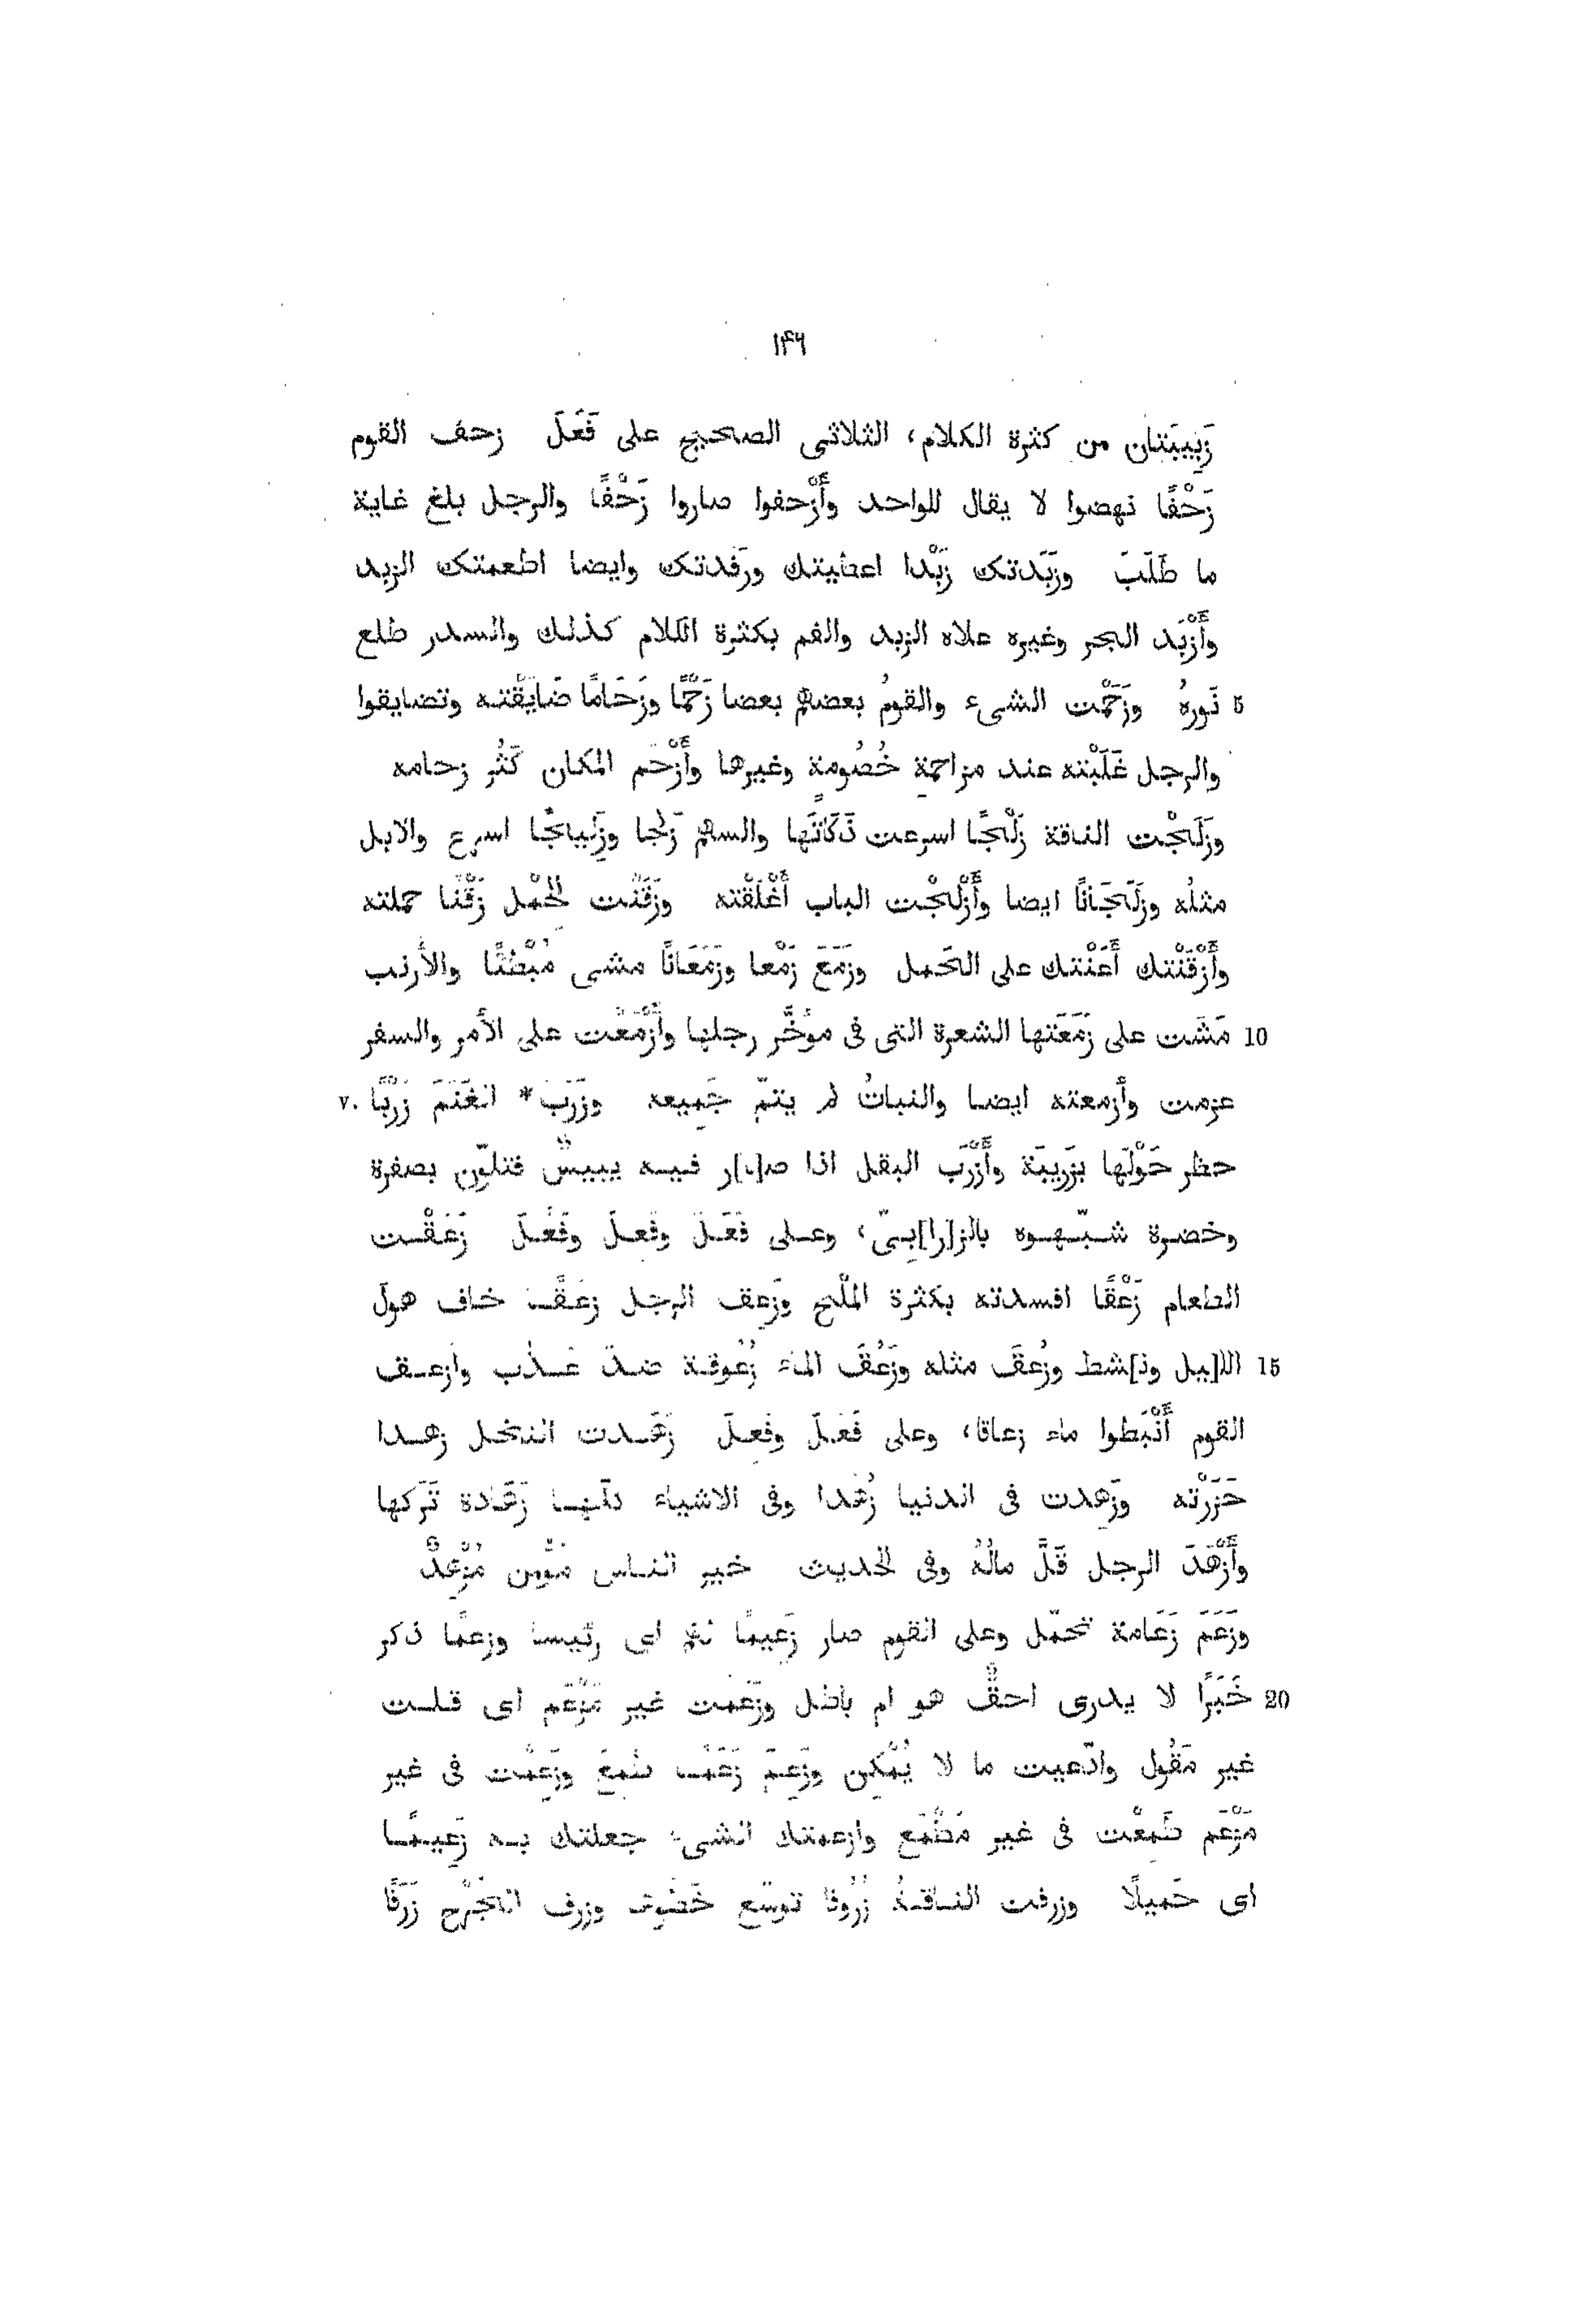 ١٤٦
زَبِيبَتان من كثرة الكلام، الثلاثى الصحيح على فَعَلَ زحف القوم
زَحْفًا نهضوا لا يقال للواحد وأَزْحفوا صاروا زَحْفًا والرجل بلغ غاية
ما طَلَبَ وزَبَدتك زَبْدا اعطيتك ورَفَدتك وايضا اطعمتك الزبد
وأَزْبَد البحر وغيره علاه الزبد والفم بكثرة الكلام كذلك والسدر طلع
5 نَورهُ وزَحَمْت الشىء والقومُ بعضهم بعضا زَحْمًا وزَحَامًا ضَايَقْته وتضايقوا
والرجل غَلَبْته عند مزاحمةِ خُصُومةٍ وغيرها وأَزْحَم المكان كَثُر زحامه
وزَلَجْت الناقة زَلْجًا اسرعت كَأَنَّها والسهم زَلْجا وزَلِيجًا اسرع والابل
مثلُه وزَلَجَانًا ايضا وأَزْلَجْت الباب أَغْلَقْته وزَقَنْت الحِمْل زَقْنا حملته
وأَزْقَنْتك أَعَنْتك على الحَمل وزَمَعَ زَمْعا وزَمَعَانًا مشى مُبْطئًا والأرنب
10 مَشَت على زَمَعَتها الشعرة التى فى موُخَّر رجلها وأَزْمَعْت على الأمر والسفر
عزمت وأزمعته ايضا والنباتُ لم يتمّ جَمِيعه وزَرَبَ* الغَنَمَ زَرْبًا ٧٠
حظر حَوْلَها بزَرِيبَة وأَزْرَب البقل اذا ص[ا]ر فيه يبيسٌ فتلوّن بصفرة
وخضرة شبّهوه بالز[را]بىّ، وعلى فَعَلَ وفَعِلَ وفَعُلَ زَعَقْت
الطعام زَعْقًا افسدته بكثرة المِلْح وزَعِق الرجل زعَقًا خاف هول
15 الل[يل ون]شط وزُعقَ مثله وزَعُقَ الماء زُعُوقة ضدّ عَذُب وازعق
القوم أَنْبَطوا ماء زعاقا، وعلى فَعَلَ وفَعِلَ زَهَدت النخل زهدا
حَزَرْته وزَهِدت فى الدنيا زُهْدا وفى الاشياء كلّها زَهَادة تَرَكها
وأَزْهَدَ الرجل قَلَّ مالُهُ وفى الحديث خير الناس مُؤْمِن مُزْهِدٌ
وزَعَمَ زَعَامة تحَمّل وعلى القوم صار زَعِيمًا لهم اى رئيسا وزعمًا ذكر
20 خَبَرًا لا يدرى احقٌّ هو ام باطل وزَعَمْت غير مَزْعَم اى قلت
غير مَقُول وادّعيت ما لا يُمْكِن وزَعِمَ زَعَمًا طَمِعَ وزَعِمْت فى غير
مَزْعَم طَمِعْت فى غير مَطْمَع وازعمتك الشىء جعلتك به زَعِيمًا
اى حَمِيلًا وزرفت الناقةُ زُرُوفا توسّع خَطْوها وزرف الجُرْح زَرَفًا